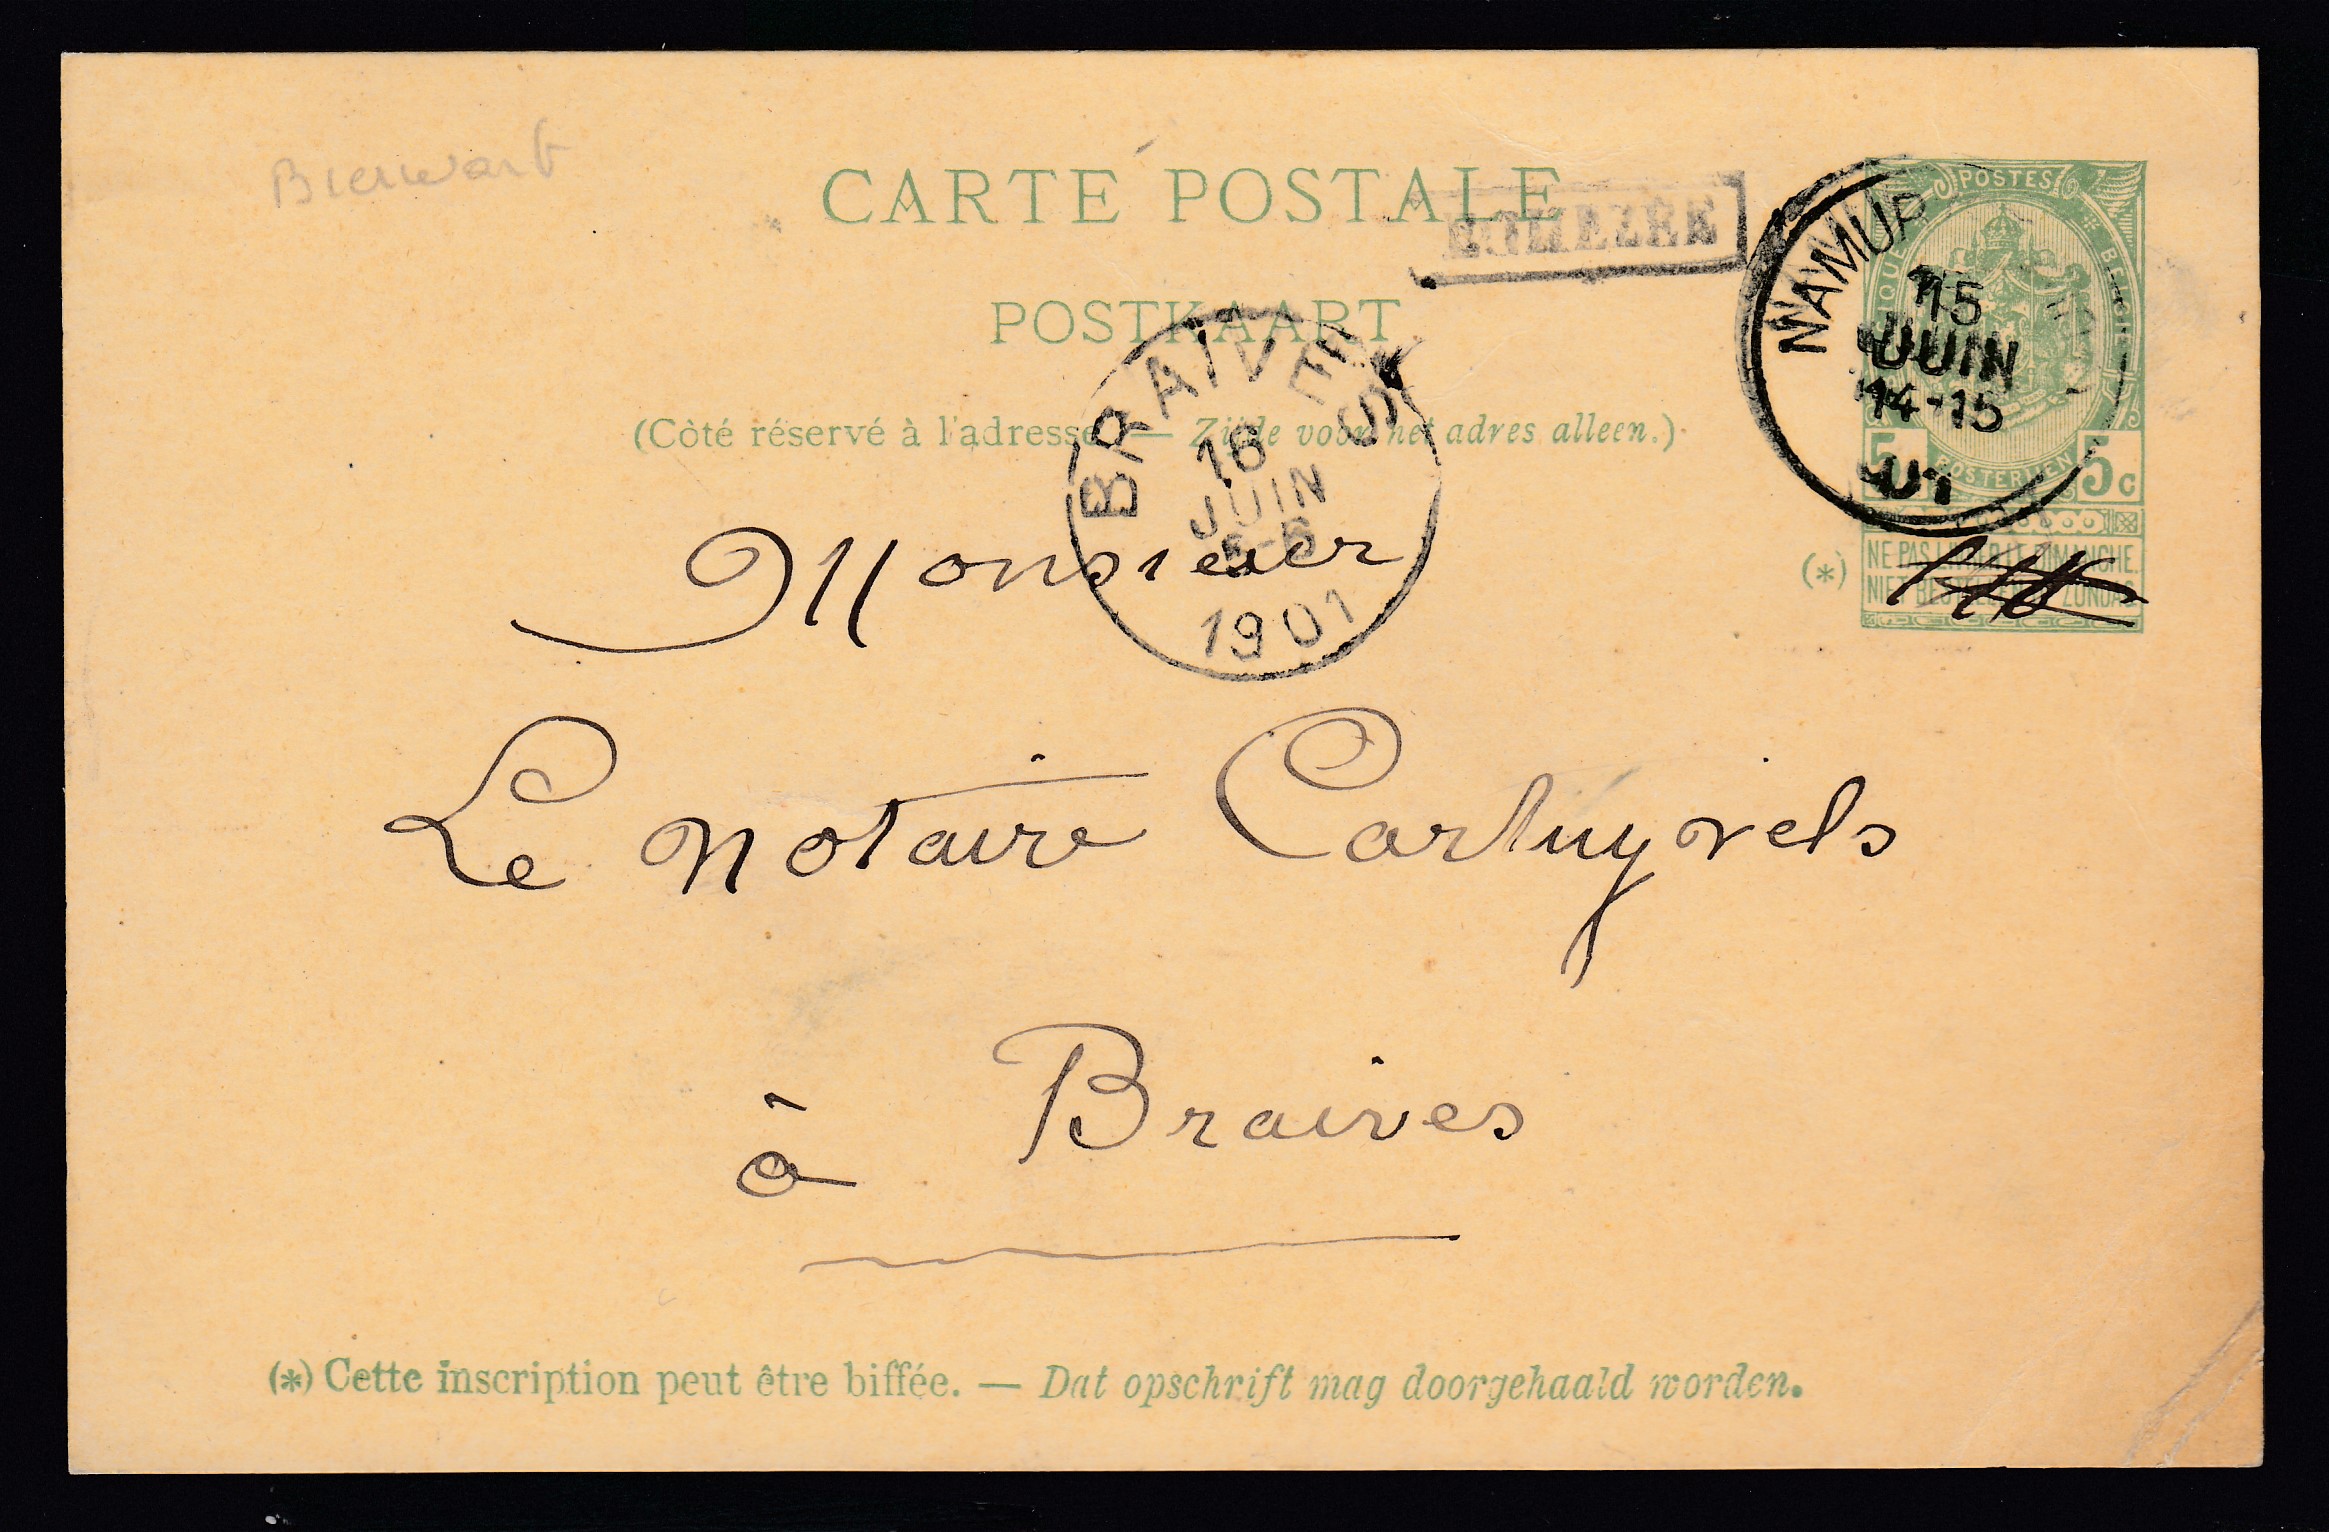 Bierwart
CARTE POSTALE
POSTKAART
(Côté réservé à l'adresse. — Zijde voor het adres alleen.)
NAMUR
15
JUIN
14-15
01
POSTES
BELGIQUE
POSTERIJEN
5 5c
(*)
NE PAS LIVRER LE DIMANCHE.
NIET BESTELLEN OP ZONDAG.
BRAIVES
16
JUIN
5-6
1901
Monsieur
Le Notaire Cartuyvels
à Braives
(*) Cette inscription peut être biffée. — Dat opschrift mag doorgehaald worden.